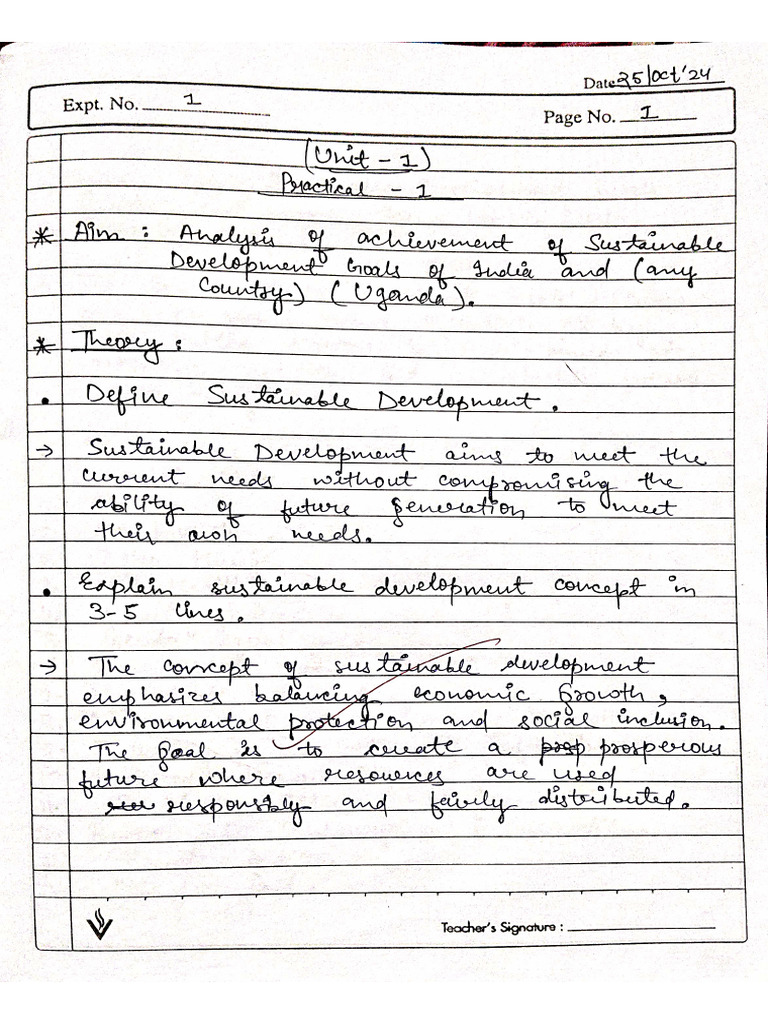 Date 25/Oct'24
Expt. No. 1
Page No. 1
(Unit - 1)
Practical - 1
* Aim : Analysis of achievement of Sustainable
Development Goals of India and (any
Country) (Uganda).
* Theory :
• Define Sustainable Development.
→ Sustainable Development aims to meet the
current needs without compromising the
ability of future generation to meet
their own needs.
• Explain sustainable development concept in
3-5 lines.
→ The concept of sustainable development
emphasizes balancing economic growth,
environmental protection and social inclusion.
The goal is to create a prosperous
future where resources are used
responsibly and fairly distributed.
Teacher's Signature :